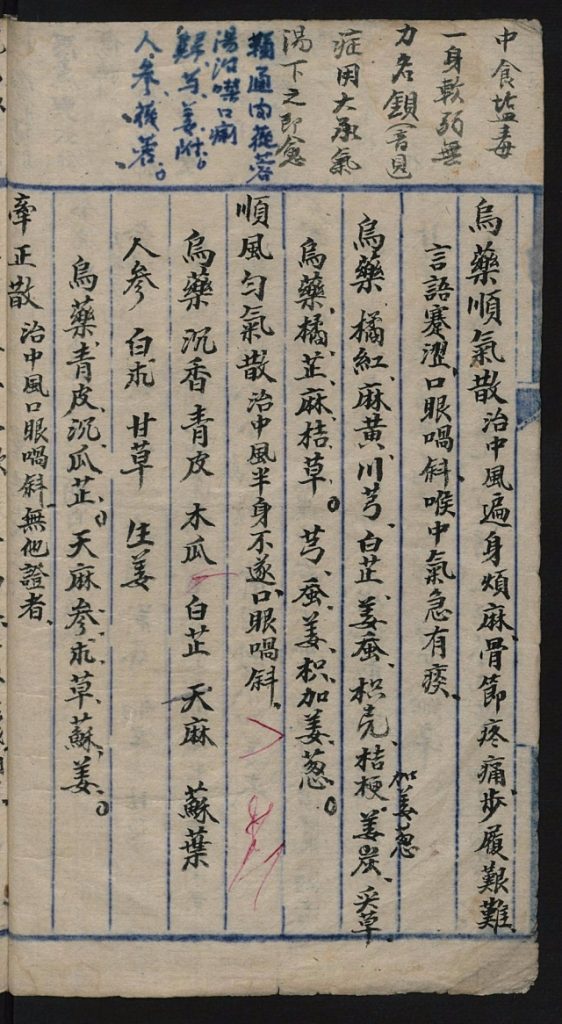 中食盐毒
一身軟弱無
力名鎖(音貝
症用大承氣
湯下之即愈
湯泡喫口痢
人參
烏藥順氣散治中風遍身煩麻、骨節疼痛、步履艱難、
言語蹇澀、口眼喎斜、喉中氣急有痰、
烏藥 橘紅、麻黄川芎、白芷、姜蚕、枳壳、桔梗、姜炭、炙草
加姜葱
烏藥、橘、芷、麻桔草。芎、蚕、姜、枳、加姜葱。
順風匀氣散治中風半身不遂、口眼喎斜、
烏藥 沉香 青皮 木瓜 白芷 天麻 蘇葉
人參 白朮 甘草 生姜
烏藥青皮、沉瓜芷。天麻參朮草、蘇、姜。
牽正散治中風口眼喎斜、無他證者、